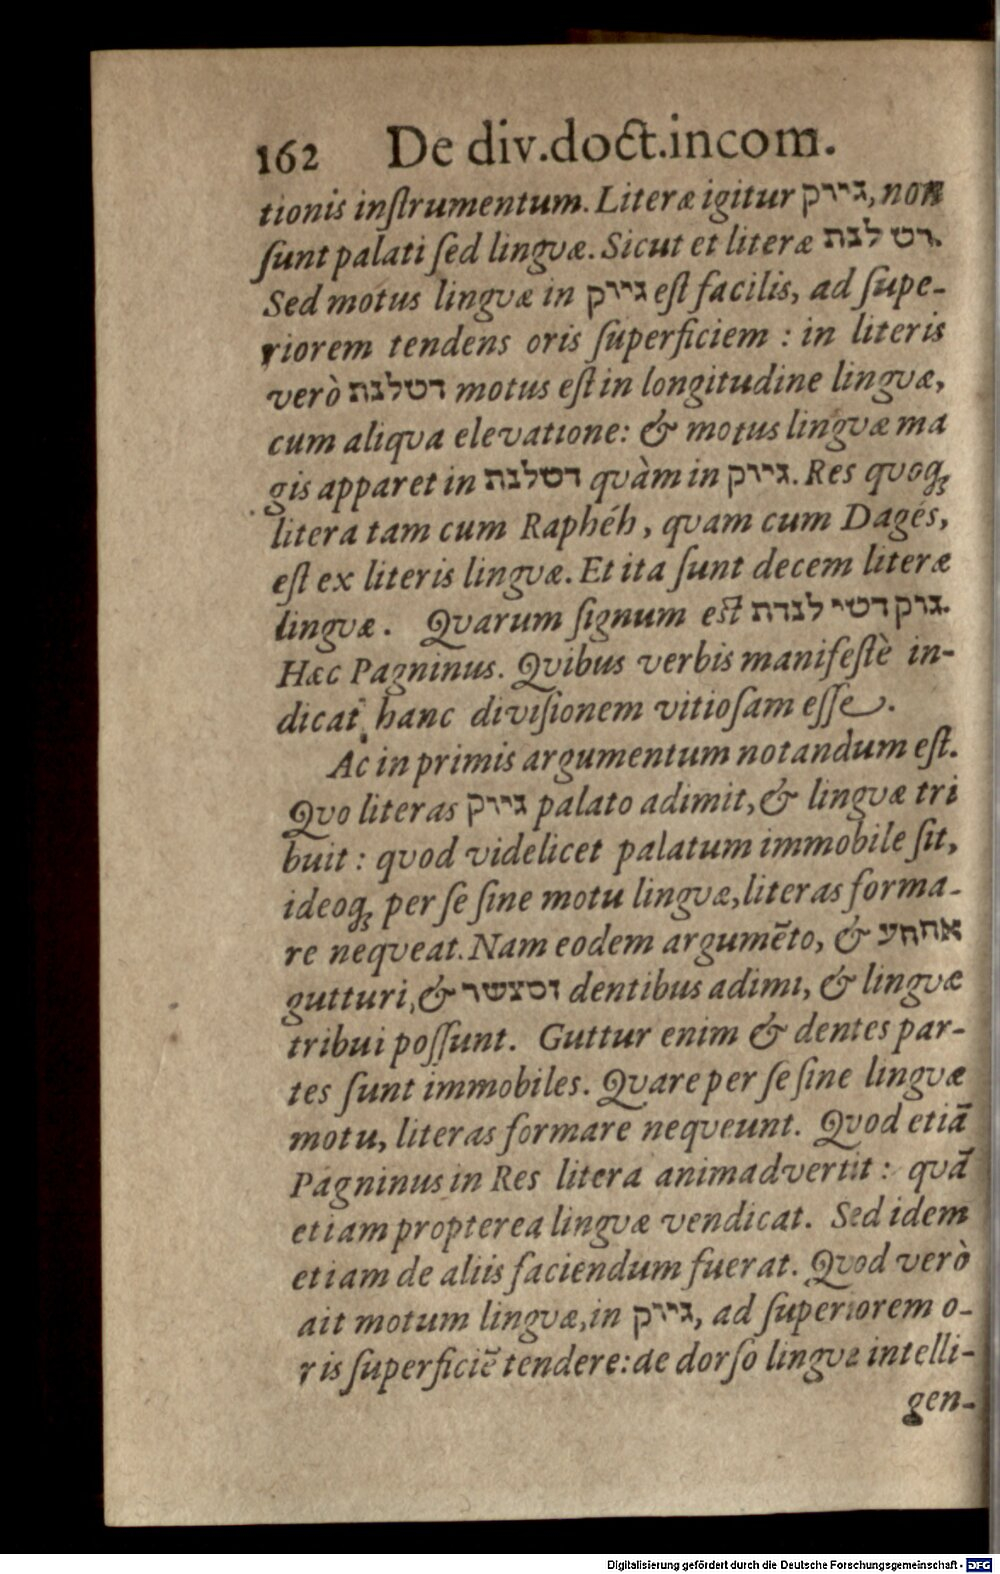 162 De div.doct.incom.
tionis inſtrumentum. Literæ igitur גיירק, non
ſunt palati ſed lingvæ. Sicut et literæ דט לבת.
Sed motus lingvæ in גיירק eſt facilis, ad ſupe-
riorem tendens oris ſuperficiem : in literis
verò דטלבת motus eſt in longitudine lingvæ,
cum aliqva elevatione: & motus lingvæ ma
gis apparet in דטלבת qvàm in גיירק. Res qvoqꝫ
litera tam cum Raphéh, qvam cum Dagés,
eſt ex literis lingvæ. Et ita ſunt decem literæ
lingvæ. Qvarum ſignum eſt גרק דטי לבדת.
Hæc Pagninus. Qvibus verbis manifeſtè in-
dicat hanc diviſionem vitioſam eſſe.
Ac in primis argumentum notandum eſt.
Qvo literas גיירק palato adimit, & lingvæ tri
buit : qvod videlicet palatum immobile ſit,
ideoqꝫ per ſe ſine motu lingvæ, literas forma-
re neqveat. Nam eodem argumẽto, & אחהע
gutturi, & דסצשר dentibus adimi, & lingvæ
tribui poſſunt. Guttur enim & dentes par-
tes ſunt immobiles. Qvare per ſe ſine lingvæ
motu, literas formare neqveunt. Qvod etiã
Pagninus in Res litera animadvertit : qvã
etiam propterea lingvæ vendicat. Sed idem
etiam de aliis faciendum fuerat. Qvod verò
ait motum lingvæ, in גיירק, ad ſuperiorem o-
ris ſuperficiẽ tendere: de dorſo lingvæ intelli-
gen-
Digitalisierung gefördert durch die Deutsche Forschungsgemeinschaft - DFG